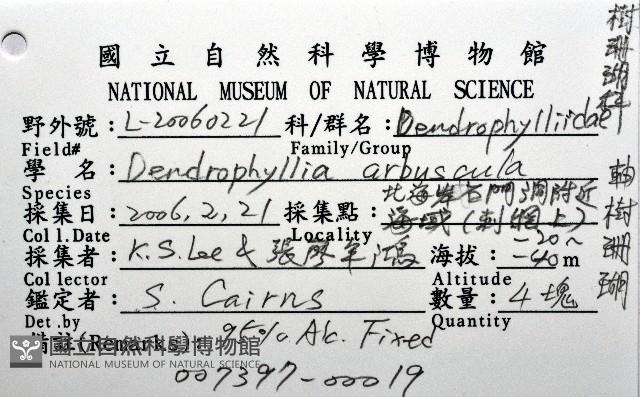 國立自然科學博物館
NATIONAL MUSEUM OF NATURAL SCIENCE
野外號：L-20060221 科/群名：Dendrophylliidae
Field# Family/Group
學 名：Dendrophyllia arbuscula
Species
採集日：2006,2,21 採集點：北海岸石門洞附近海域(刺網上)
Coll.Date Locality
採集者：K.S.Lee & 張 軍 鴻 海拔：-20~-40m
Collector Altitude
鑑定者：S. Cairns 數量：4塊
Det.by Quantity
備註(Remarks)：95% Alc. Fixed
007397-00019
樹珊瑚科
軸樹珊瑚
國立自然科學博物館
NATIONAL MUSEUM OF NATURAL SCIENCE